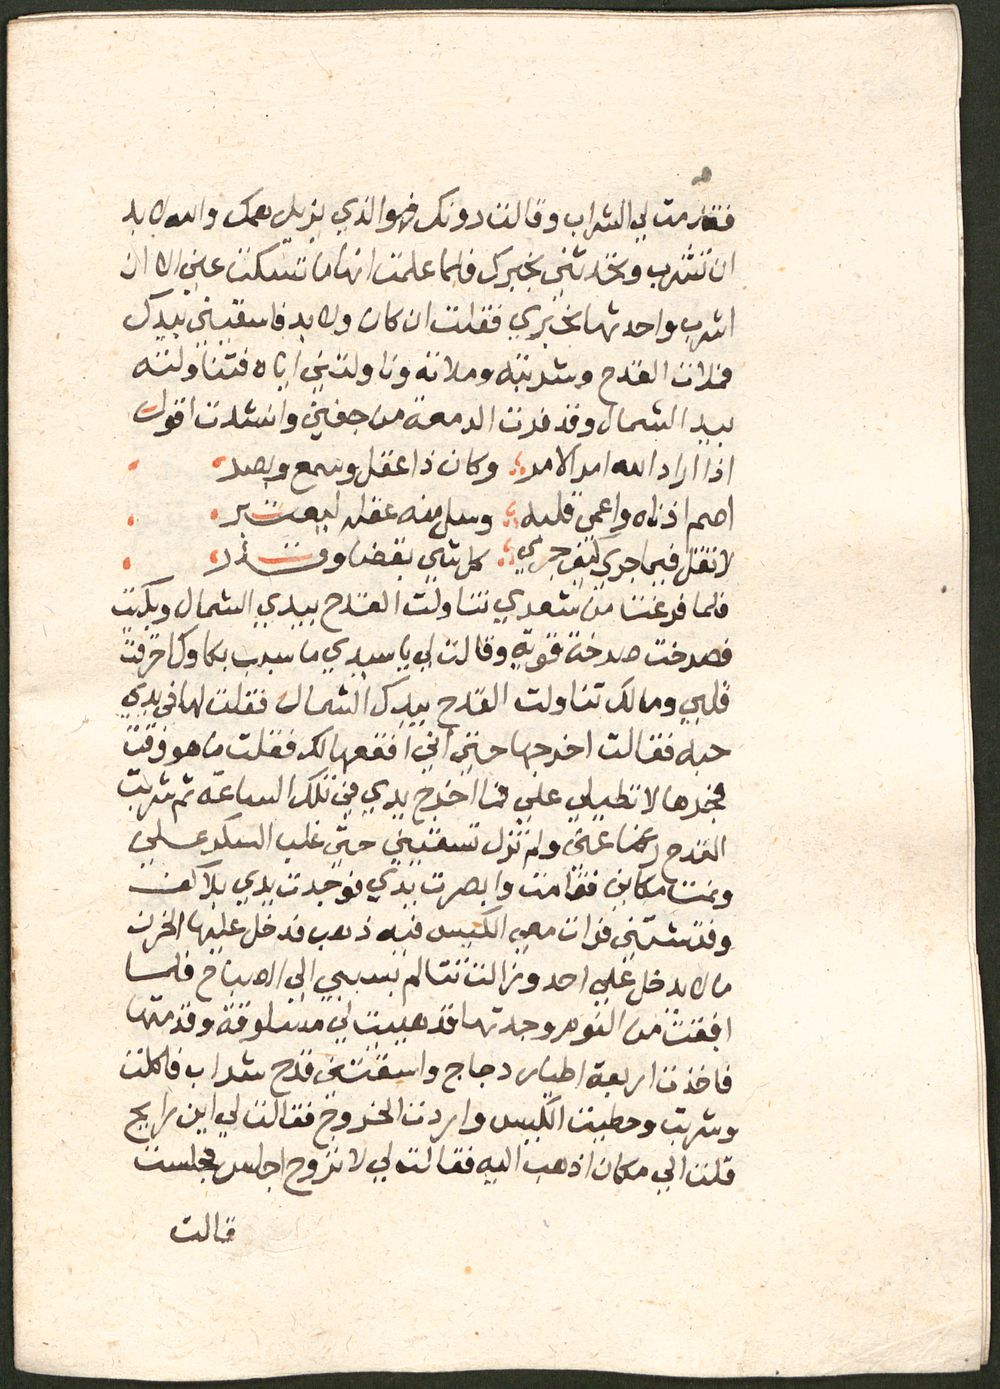 فقدمت لي الشراب وقالت دونك فهو الذي يزيل همك والله لابد
ان تشرب وتحدثني بخبرك فلما علمت انها ما تسكت عني الا ان
اشرب واحدثها بخبري فقلت ان كان ولابد فاسقيني بيدك
فملات القدح وشربته وملاته وناولتني اياه فتناولته
بيد الشمال وقد فرت الدمعة من جفني وانشدت اقول
اذا اراد الله امر الامر وكان ذا عقل وسمع وبصر
اصم اذناه واعمي قلبه وسل منه عقله ليعتبر
لا تقل فيما جري كيف جري كل شي بقضا وقدر
فلما فرغت من شعري تناولت القدح بيدي الشمال وبكيت
فصرخت صرخة قوية وقالت لي يا سيدي ما سبب بكاوك احرقت
قلبي ومالك تناولت القدح بيدك الشمال فقلت لها في يدي
حبه فقالت اخرجها حتي اني افقعها لك فقلت ما هو وقت
فجرها لا تطيلي علي فما اخرج يدي في تلك الساعة ثم شربت
القدح رغما عني ولم تزل تسقيني حتي غلب السكر علي
ونمت مكاني فقامت وابصرت يدي فوجدت يدي بلا كف
وفتشتني فرات معي الكيس فيه ذهب فدخل عليها الحزن
ما لا يدخل علي احد وزالت تتالم بسببي الي الصباح فلما
افقت من النوم وجدتها قد هييت لي مسلوقة وقدمتها
فاخذت اربعة اطيار دجاج واسقتني قدح شراب فاكلت
وشربت وحطيت الكيس واردت الخروج فقالت لي اين رايح
قلت الي مكان اذهب اليه فقالت لي لا تروح اجلس فجلست
قالت